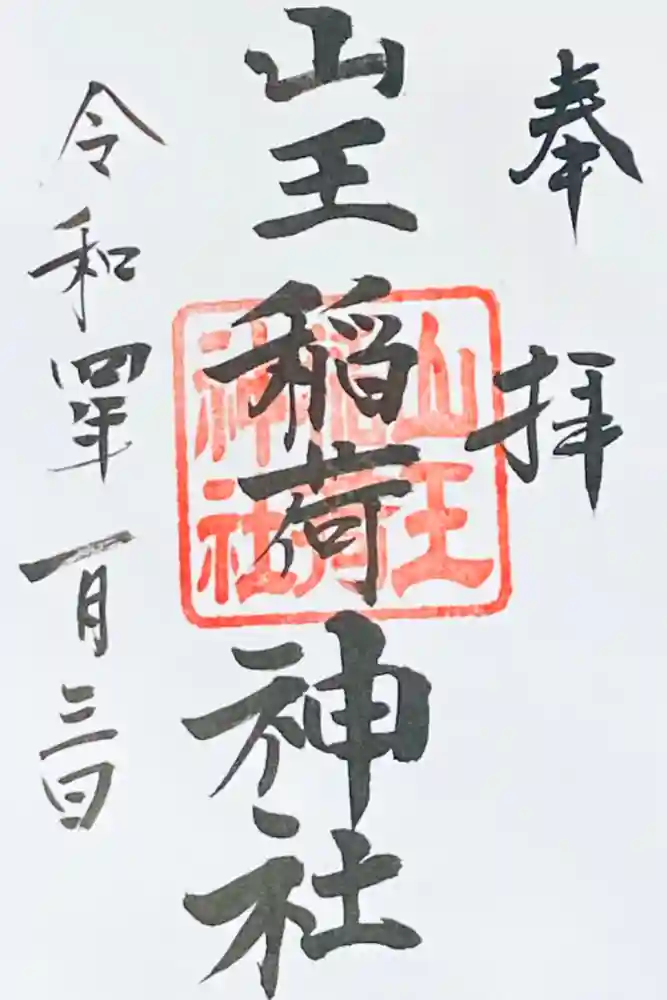 奉拝
山王稲荷神社
令和四年一月三日
山王
稲荷
神社